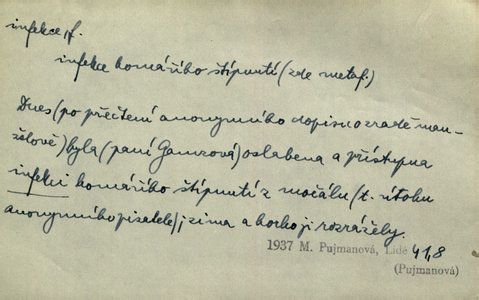 infekce, f.
infekce komářího štípnutí (zde metaf.)
Dnes (po přečtení anonymního dopisu o zradě man-
želově) byla (paní Gamzová) oslabena a přístupna
infekci komářího štípnutí z močálu (t. útoku
anonymního pisatele); zima a horko ji rozrážely.
1937 M. Pujmanová, Lidé 41,8
(Pujmanová)